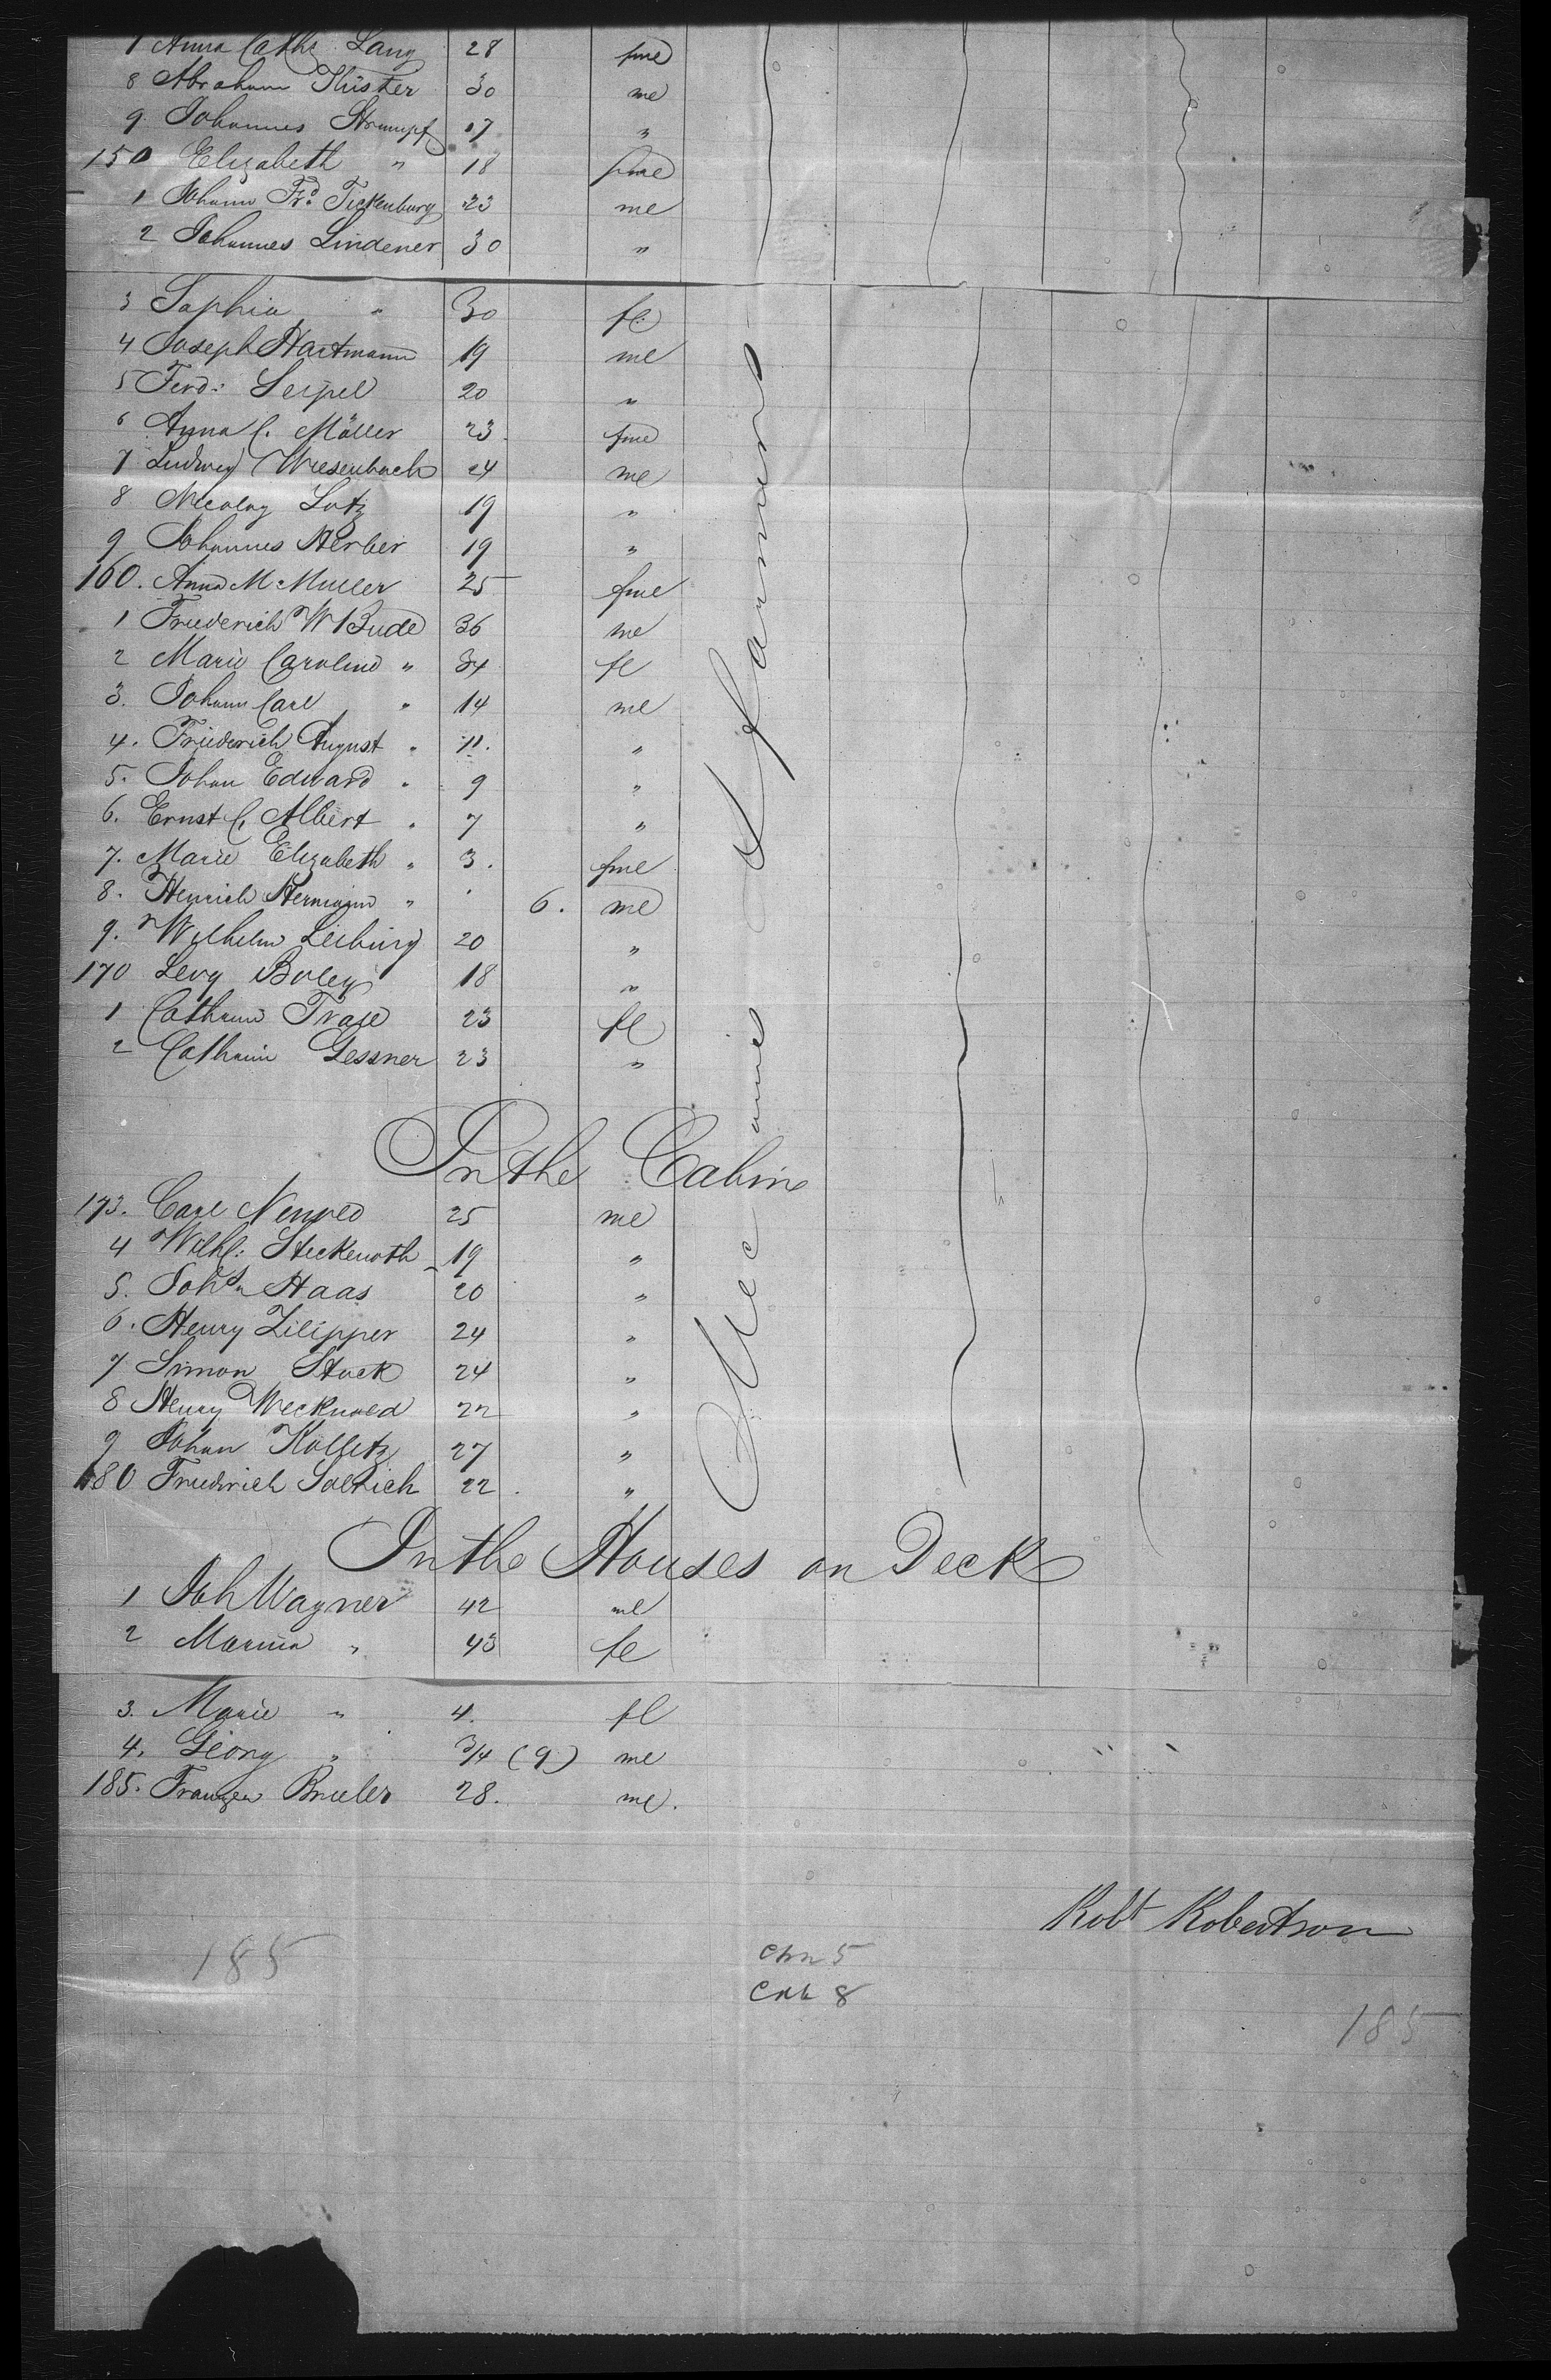 7 Anna Cath: Lang 28 fme
8 Abraham Küster 30 me
9. Johannes Strumpf 17 "
150 Elizabeth " 18 fme
1 Johann Frd. Tickenburg 23 me
2 Johannes Lindener 30 "
3 Sophia " 30 fe
4 Joseph Hartmann 19 me
5 Ferd: Seipel 20 "
6 Anna C. Möller 23 fme
7 Ludwig Wiesenbach 24 me
8 Nicolay Lotz 19 "
9 Johannes Herber 19 "
160. Anna M Muller 25 fme
1 Friederich W Bude 36 me
2 Marie Caroline " 34 fe
3. Johann Carl " 14 me
4. Friederich August " 11. "
5. Johan Edward " 9 "
6. Ernst C. Albert " 7 "
7. Marie Elizabeth " 3. fme
8. Henrich Hermann " 6. me
9. Wilhelm Leiburg 20 "
170 Levy Boley 18 "
1 Cathrine 23 fe
2 Cathrine Gessner 23 "
Mecanic & farmers
In the Cabine
173. Carl 25 me
4 Wilh: Steckenoth 19 "
5. John Haas 20 "
6. Henry Zilipper 24 "
7 Simon Stock 24 "
8 Henry 22 "
9 Johan Kolletz 27 "
180 Friedrich 22. "
In the Houses on Deck
1 Joh Wagner 42 me
2 " 43 fe
3. Marie " 4. fe
4. Georg " 3/4 (9) me
185. Franzen 28. me.
Robt Robertson
185
Chn 5
Cab 8
185